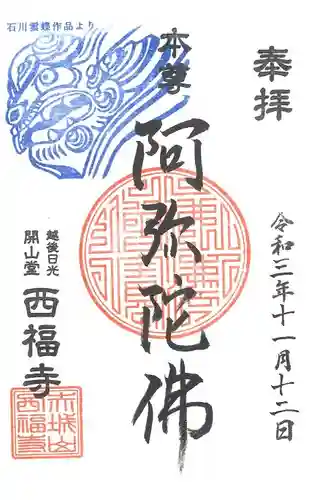 奉拝
令和三年十一月十二日
本尊
阿弥陀佛
石川雲蝶作品より
越後日光
開山堂
西福寺
赤城山
西福寺